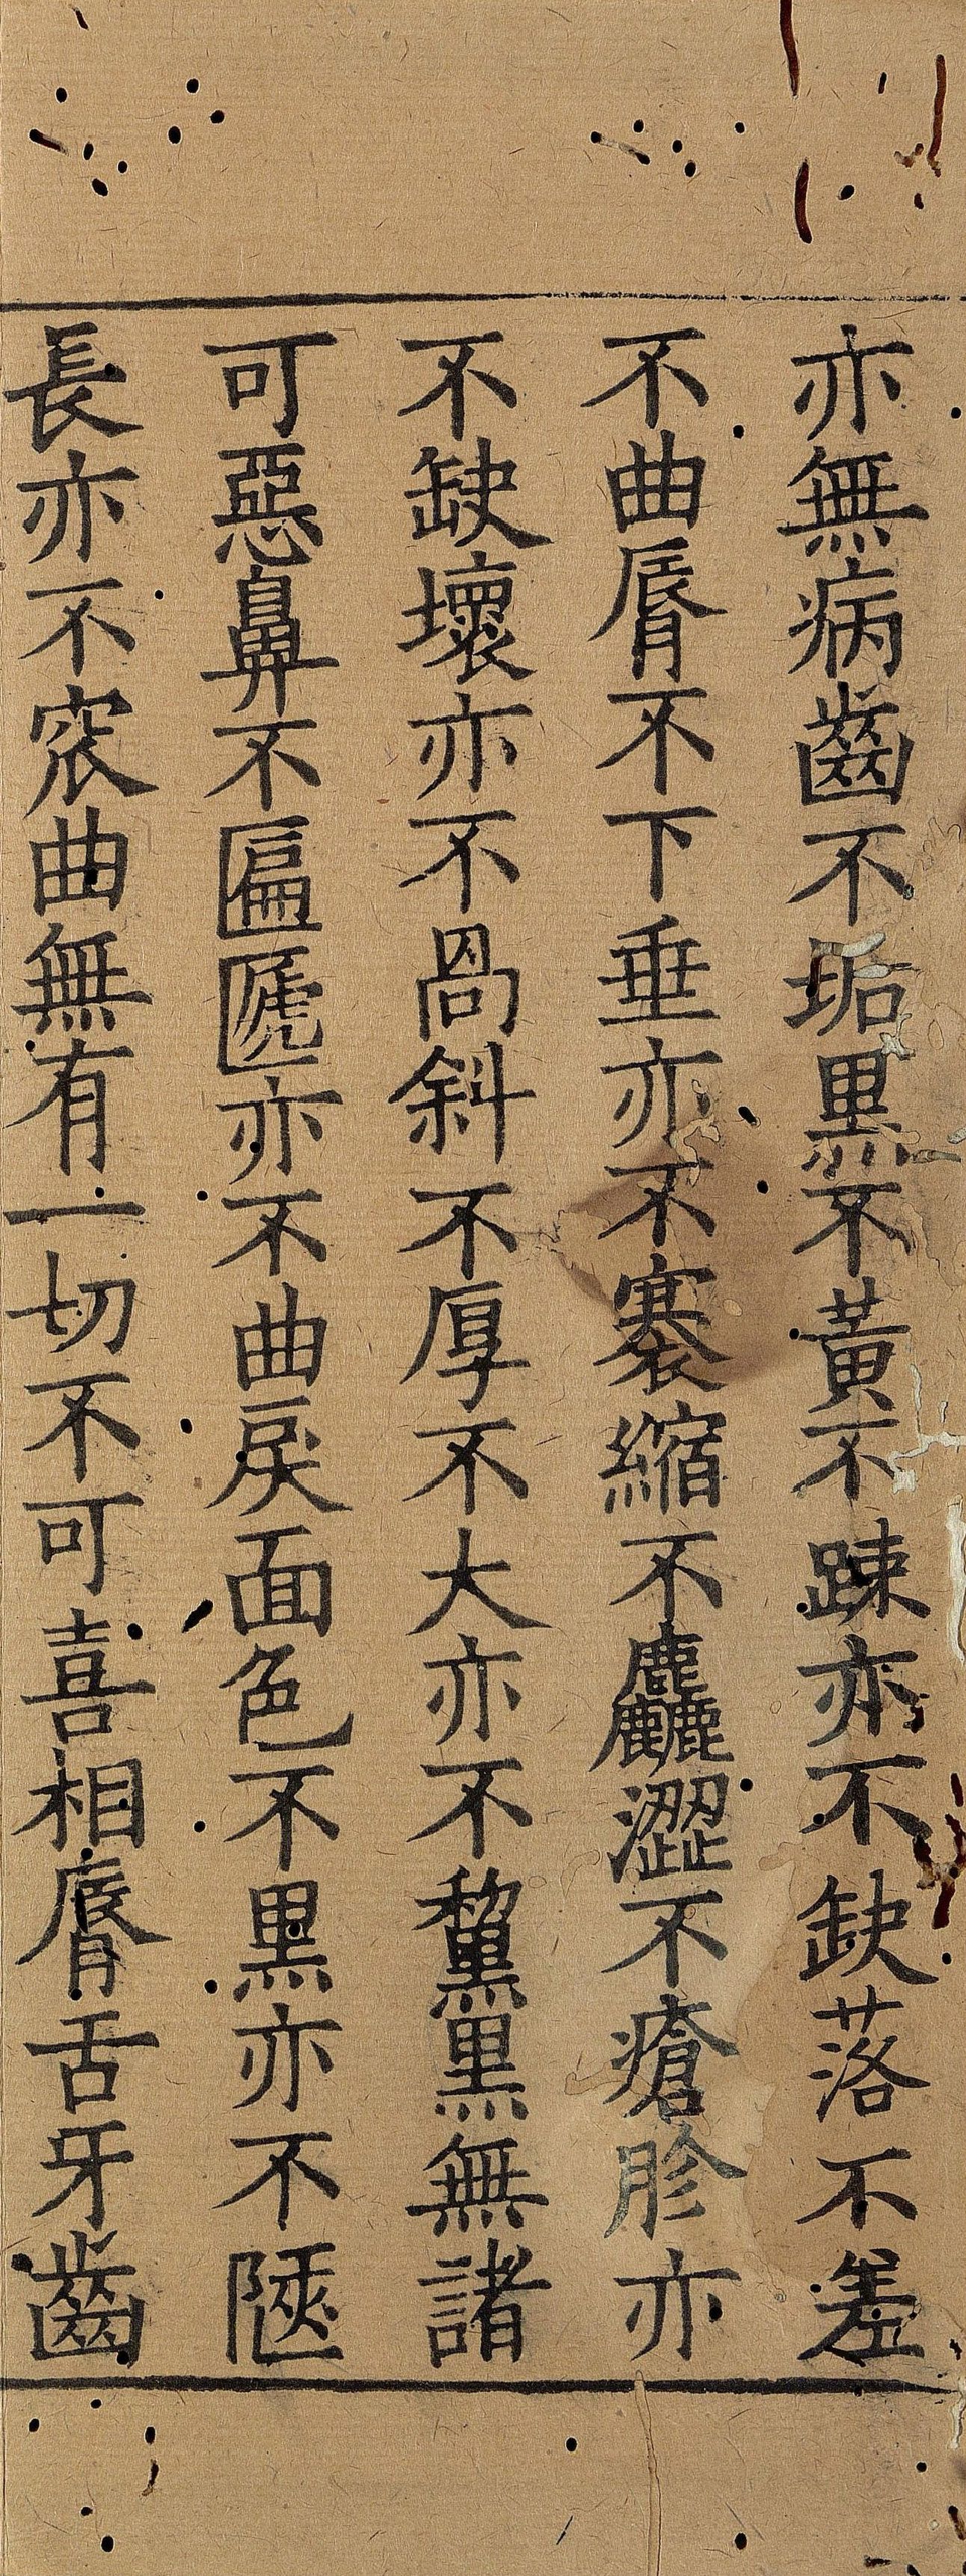 亦無病齒不垢黒不黃不踈亦不缺落不差
不曲脣不下垂亦不褰縮不麤澀不瘡胗亦
不缺壞亦不喎斜不厚不大亦不黧黒無諸
可惡鼻不匾㔸亦不曲戾面色不黒亦不陿
長亦不窊曲無有一切不可喜相脣舌牙齒